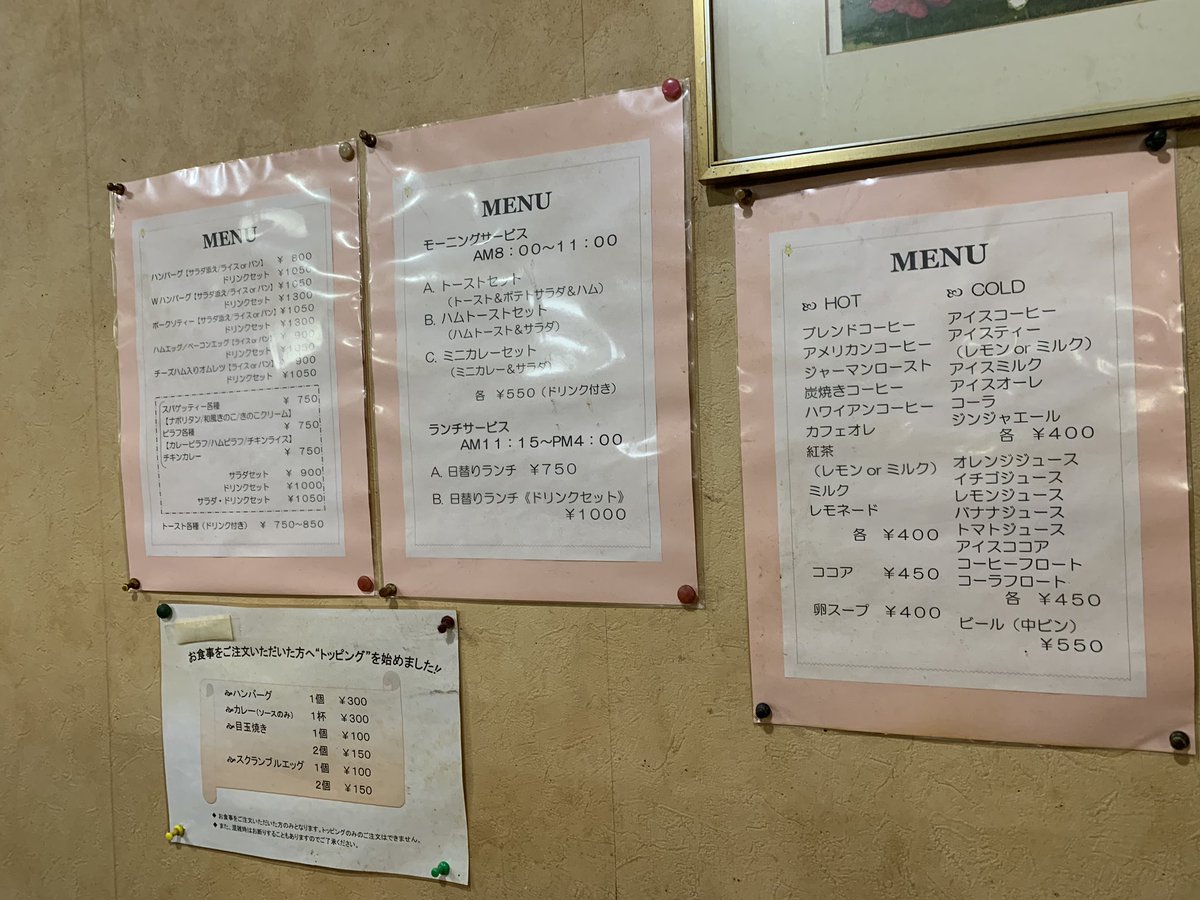 MENU
ハンバーグ【サラダ添え/ライス or パン】 ￥ 800
ドリンクセット ￥1050
Wハンバーグ【サラダ添え/ライス or パン】 ￥1050
ドリンクセット ￥1300
ポークソティー【サラダ添え/ライス or パン】 ￥1050
ドリンクセット ￥1300
ハムエッグ/ベーコンエッグ【ライス or パン】 ￥ 900
ドリンクセット ￥1050
チーズハム入りオムレツ【ライス or パン】 ￥ 900
ドリンクセット ￥1050
スパゲッティー各種 ￥ 750
【ナポリタン/和風きのこ/きのこクリーム】
ピラフ各種 ￥ 750
【カレーピラフ/ハムピラフ/チキンライス】
チキンカレー ￥ 750
サラダセット ￥ 900
ドリンクセット ￥1000
サラダ・ドリンクセット ￥1050
トースト各種（ドリンク付き） ￥ 750～850
MENU
モーニングサービス
AM8：00～11：00
A. トーストセット
（トースト＆ポテトサラダ＆ハム）
B. ハムトーストセット
（ハムトースト＆サラダ）
C. ミニカレーセット
（ミニカレー＆サラダ）
各 ￥550（ドリンク付き）
ランチサービス
AM11：15～PM4：00
A. 日替りランチ ￥750
B. 日替りランチ《ドリンクセット》
￥1000
MENU
HOT
ブレンドコーヒー
アメリカンコーヒー
ジャーマンロースト
炭焼きコーヒー
ハワイアンコーヒー
カフェオレ
紅茶
（レモン or ミルク）
ミルク
レモネード
各 ￥400
ココア ￥450
卵スープ ￥400
COLD
アイスコーヒー
アイスティー
（レモン or ミルク）
アイスミルク
アイスオーレ
コーラ
ジンジャエール
各 ￥400
オレンジジュース
イチゴジュース
レモンジュース
バナナジュース
トマトジュース
アイスココア
コーヒーフロート
コーラフロート
各 ￥450
ビール（中ビン）
￥550
お食事をご注文いただいた方へ“トッピング”を始めました!!
ハンバーグ 1個 ￥300
カレー(ソースのみ) 1杯 ￥300
目玉焼き 1個 ￥100
2個 ￥150
スクランブルエッグ 1個 ￥100
2個 ￥150
◆ お食事をご注文いただいた方のみとなります。トッピングのみのご注文はできません。
◆ また、混雑時はお断りすることもありますのでご了承ください。